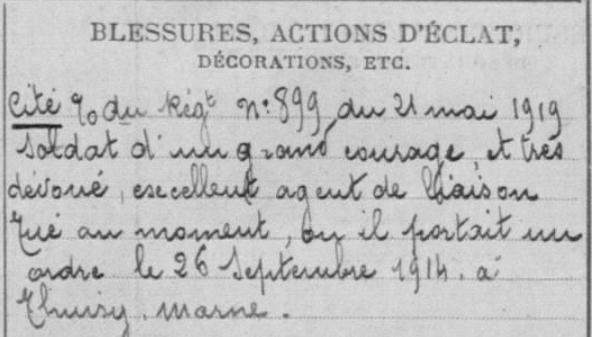 BLESSURES, ACTIONS D'ÉCLAT,
DÉCORATIONS, ETC.
Cité %o du Régt n: 899 du 21 mai 1919
soldat d'un grand courage, et très
dévoué, excellent agent de liaison
tué au moment, ou il portait un
ordre le 26 Septembre 1914. à
Thuisy. Marne.